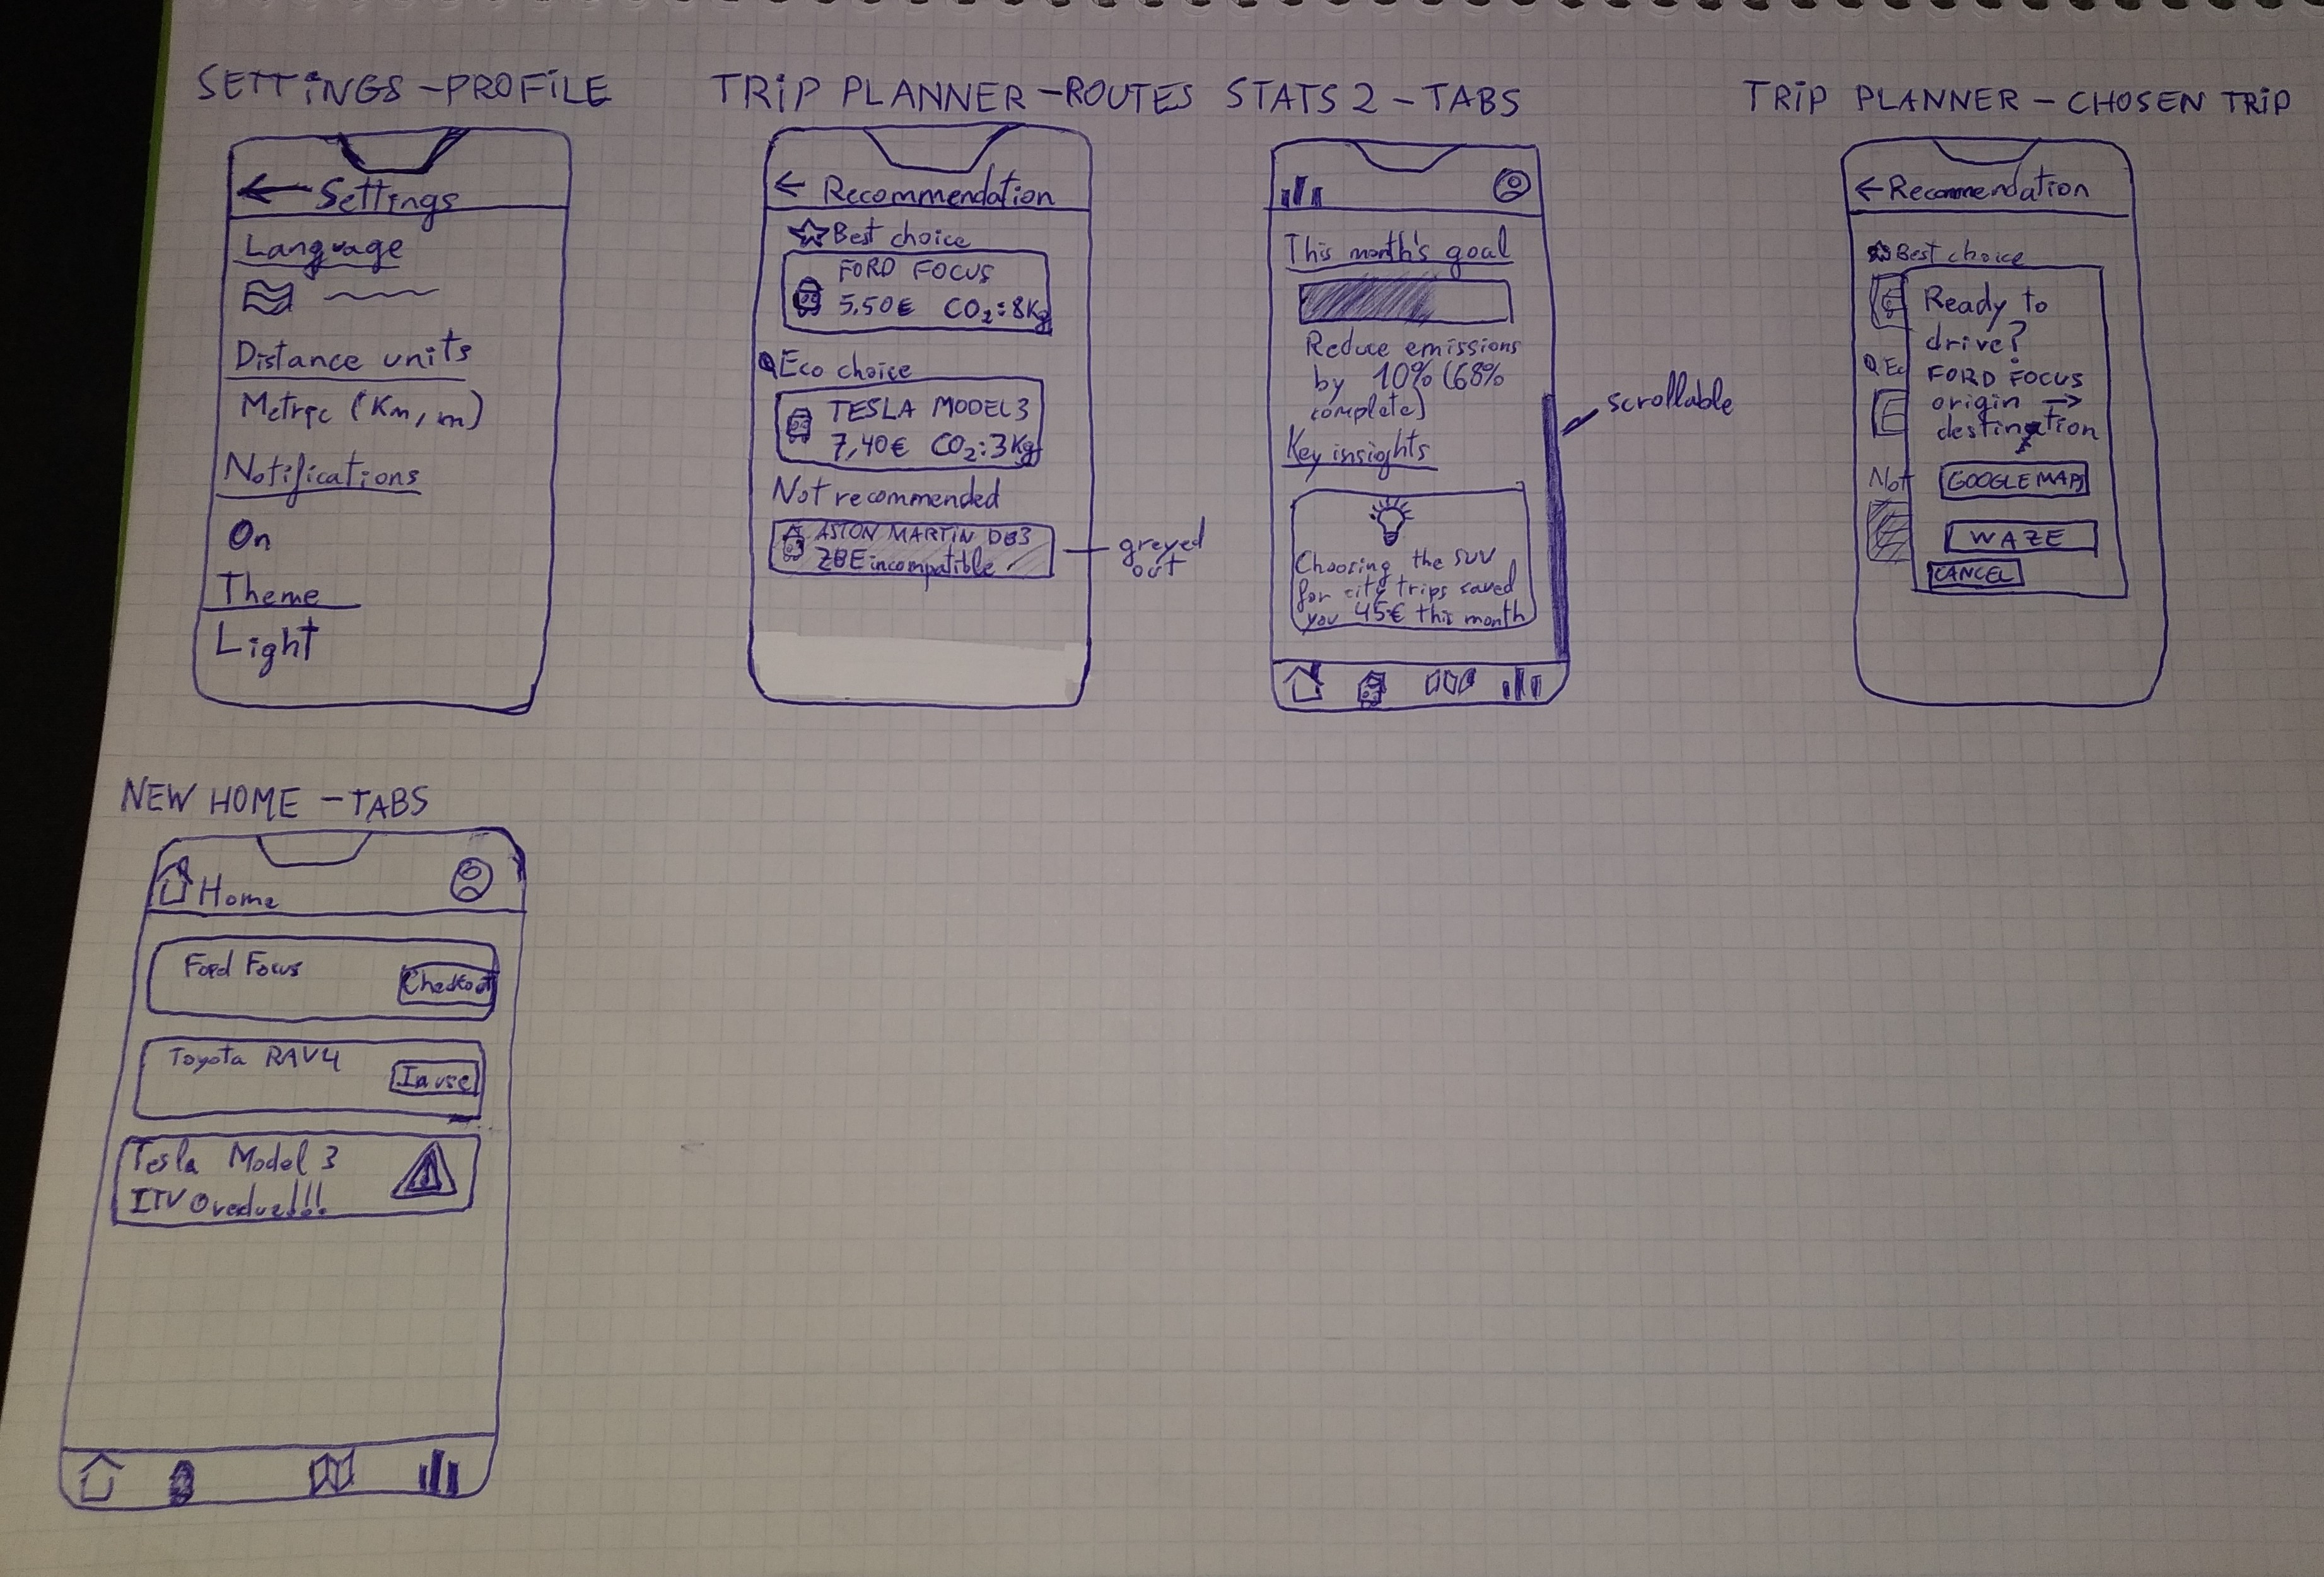 SETTINGS - PROFILE
← Settings
Language
Distance units
Metric (Km, m)
Notifications
On
Theme
Light
TRIP PLANNER - ROUTES
← Recommendation
Best choice
FORD FOCUS
5,50€ CO₂:8Kg
Eco choice
TESLA MODEL 3
7,40€ CO₂:3Kg
Not recommended
ASTON MARTIN DB3
ZBE incompatible
greyed
out
STATS 2 - TABS
This month's goal
Reduce emissions
by 10% (68%
complete)
Key insights
Choosing the SUV
for city trips saved
you 45€ this month
scrollable
TRIP PLANNER - CHOSEN TRIP
← Recommendation
Best choice
Ec
Not
Ready to
drive?
FORD FOCUS
origin →
destination
GOOGLE MAPS
WAZE
CANCEL
NEW HOME - TABS
Home
Ford Focus
Checkout
Toyota RAV4
In use
Tesla Model 3
ITV Overdue!!!